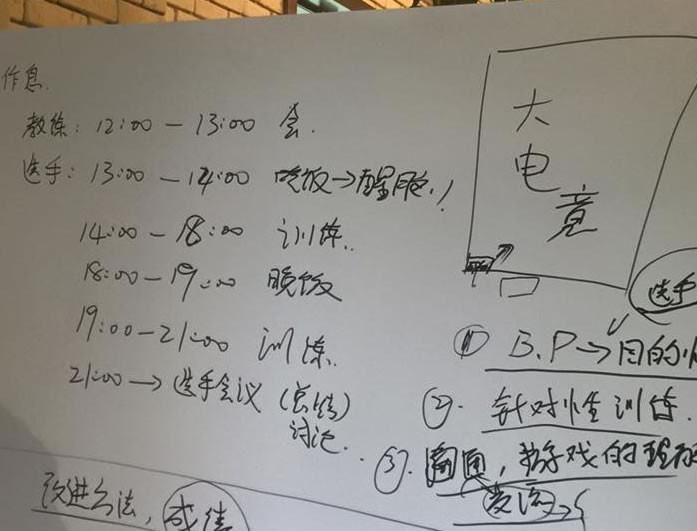 作息.
教练: 12:00 — 13:00 会.
选手: 13:00 — 14:00 吃饭→醒脑.!
14:00 — 18:00 训练..
18:00 — 19:00 晚饭
19:00 — 21:00 训练.
21:00 → 选手会议 (总结)
讨论..
改进方法, 成绩
大
电
竞
选手
① B.P → 目的性
②. 针对性训练.
③. 游戏的理解